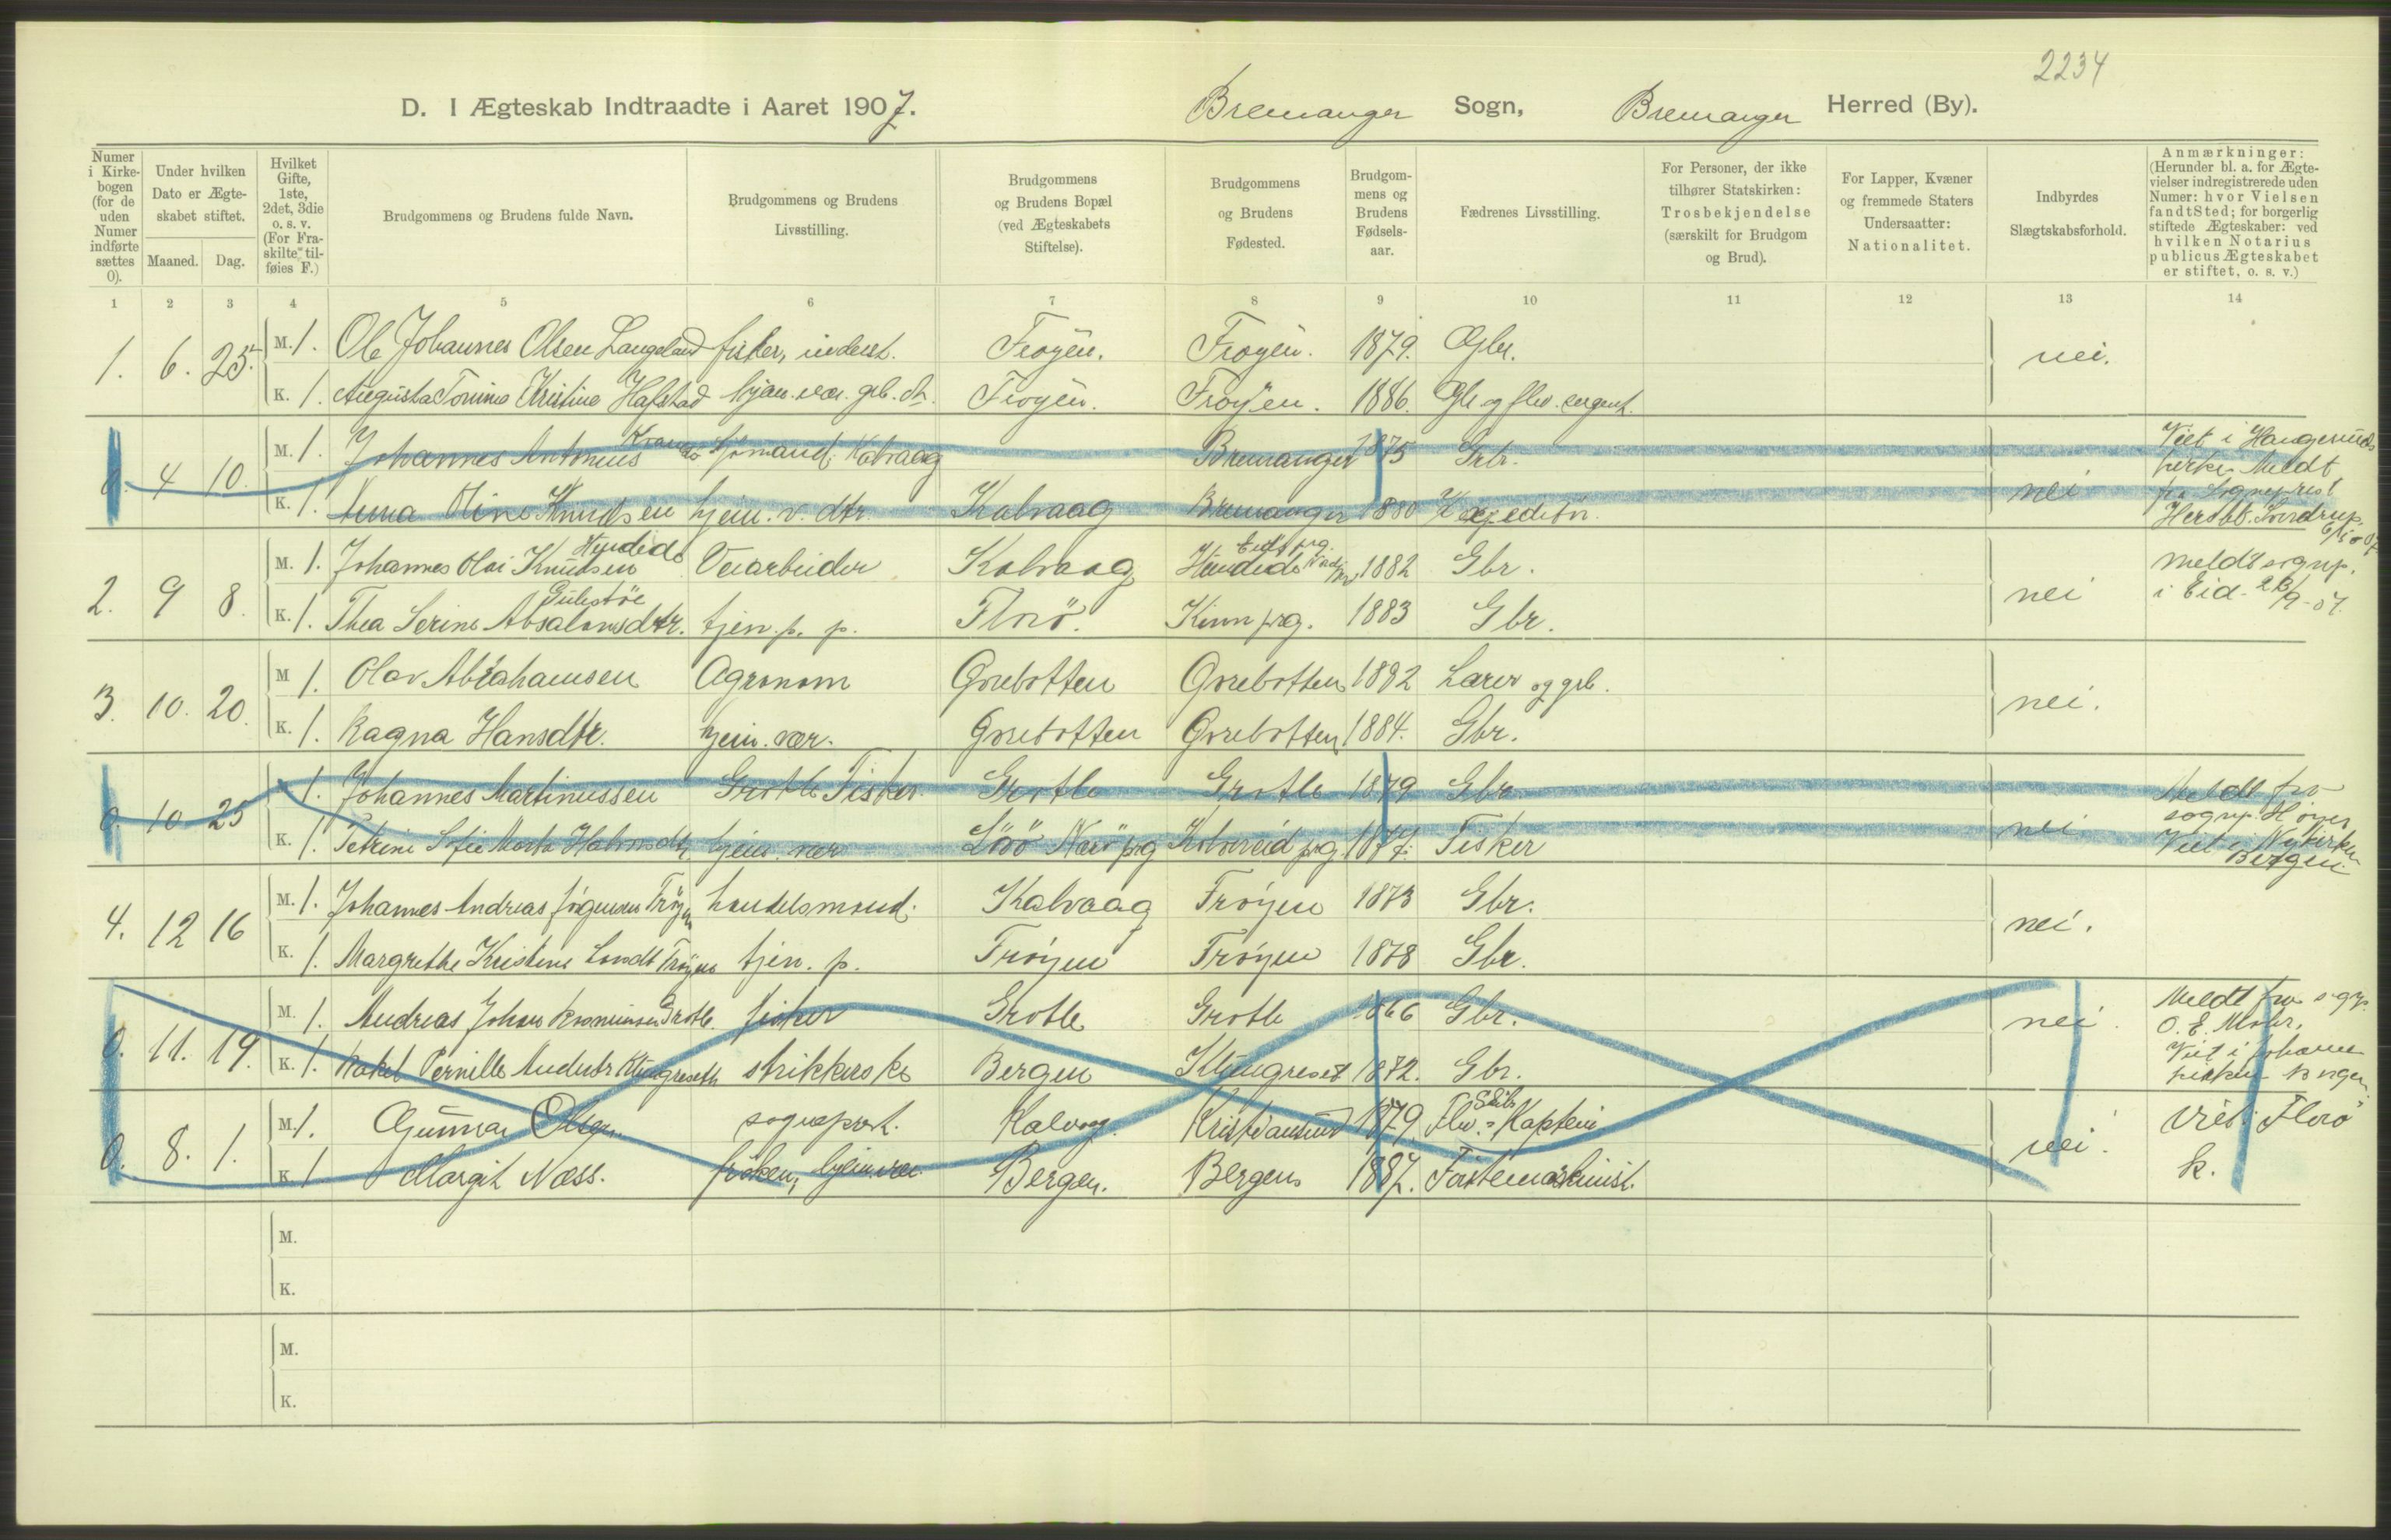 2234
D. I Ægteskab Indtraadte i Aaret 1907. Bremanger Sogn, Bremanger Herred (By).
Numer i Kirkebogen (for de uden Numer indførte sættes 0).
Under hvilken Dato er Ægteskabet stiftet.
Maaned. Dag.
Hvilket Gifte, 1ste, 2det, 3die o. s. v. (For Fraskilte tilføies F.)
Brudgommens og Brudens fulde Navn.
Brudgommens og Brudens Livsstilling.
Brudgommens og Brudens Bopæl (ved Ægteskabets Stiftelse).
Brudgommens og Brudens Fødested.
Brudgommens og Brudens Fødselsaar.
Fædrenes Livsstilling.
For Personer, der ikke tilhører Statskirken: Trosbekjendelse (særskilt for Brudgom og Brud).
For Lapper, Kvæner og fremmede Staters Undersaatter: Nationalitet.
Indbyrdes Slægtskabsforhold.
Anmærkninger: (Herunder bl. a. for Ægtevielser indregistrerede uden Numer: hvor Vielsen fandt Sted; for borgerlig stiftede Ægteskaber: ved hvilken Notarius publicus Ægteskabet er stiftet, o. s. v.)
1 2 3 4 5 6 7 8 9 10 11 12 13 14
1. 6. 25. M. 1. Ole Johannes Olsen Langeland fisker, inderst. Frøyen. Frøyen. 1879. Gbr. nei.
K. 1. Augusta Kristine Hafstad hjem. vær. grb. dtr. Frøyen. Frøyen. 1886. Gbr. og sergent.
0. 4 10. M. 1. Johannes Antonius Sjømand Kalvaag Bremanger 1875 Grbr. nei Viet i Haugesunds kirke. Meldt fra Sogneprest
K. 1. Anna Oline Knudsen hjem. v. dtr. Kalvaag Bremanger 1880 Expeditør.
2. 9 8. M. 1. Johannes Olai Knudsen Hundeide Veiarbeider Kalvaag Hundeide Eids prg. 1882 Gbr. nei meldt sognp. i Eid
K. 1. Thea Serine Absalonsdtr. tjen. p. p. Florö. Kinn prg. 1883 Gbr.
3. 10. 20. M 1. Olav Abrahamsen Agronom Grrebotten Grrebotten 1882 Lærer og grb. nei.
K. 1. Ragna Hansdtr. hjem. vær. Grrebotten Grrebotten 1884. Gbr.
0. 10 25 1. Johannes Martinussen Grotle Fisker Grotle Grotle 1879 Gbr. nei Meldt fra sognp. Viet i Nykirken Bergen
K. 1. Petrine Sofie hjem. vær Kolvereid prg 1877. Fisker
4. 12 16 M. 1. Johannes Andreas Frøyen handelsmand. Kalvaag Frøyen 1873 Gbr. nei.
K. 1. Margrethe Kristine Frøyen tjen. p. Frøyen Frøyen 1878 Gbr.
0. 11. 19. M. 1. Andreas Johan Grotle. fisker Grotle Grotle 1866 Gbr. nei. Meldt fra sognp. O. E. Mohr. Viet i Johanneskirken Bergen
K. 1. Rakel Pernille strikkerske Bergen 1872. Gbr.
0. 8. 1. M. 1. Gunnar Olsen sogneprest. Kalvaag. Kristiansund 1879. Skibs Kaptein nei. Viet i Florö k.
K 1 Margit Næss. frøken, hjem. vær. Bergen. Bergen 1887. Førstemaskinist.
M.
K.
M.
K.